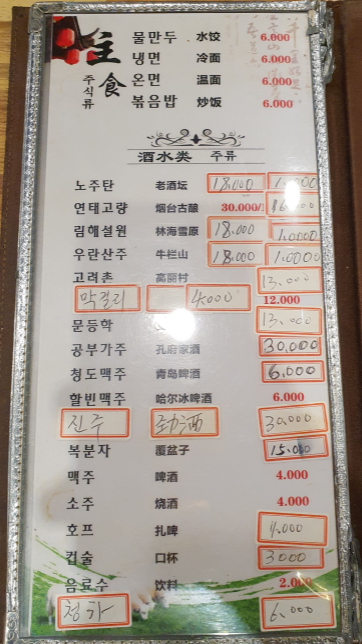 主食
주식류
물만두 水饺 6.000
냉면 冷面 6.000
온면 温面 6.000
볶음밥 炒饭 6.000
酒水类 주류
노주탄 老酒坛 18.000 1.0000
연태고량 烟台古酿 30.000/
림해설원 林海雪原 18.000 1.0000
우란산주 牛栏山 18.000 1.0000
고려촌 高丽村 13.000
막걸리 4.000 12.000
문등학 13.000
공부가주 孔府家酒 30.000
청도맥주 青岛啤酒 6.000
할빈맥주 哈尔冰啤酒 6.000
진주 劲酒 30.000
복분자 覆盆子 15.000
맥주 啤酒 4.000
소주 烧酒 4.000
호프 扎啤 4.000
컵술 口杯 3000
음료수 饮料 2.000
청하 6.000